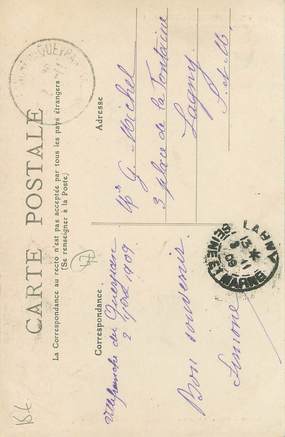 CARTE POSTALE
La Correspondance au recto n'est pas acceptée par tous les pays étrangers
(Se renseigner à la Poste.)
Correspondance
Villefranche du Queyran
2 1909
Bon souvenir
Simone
Adresse
G. Michel
3 place de la Fontaine
Lagny
S. et M.
LAGNY
SEINE ET MARNE